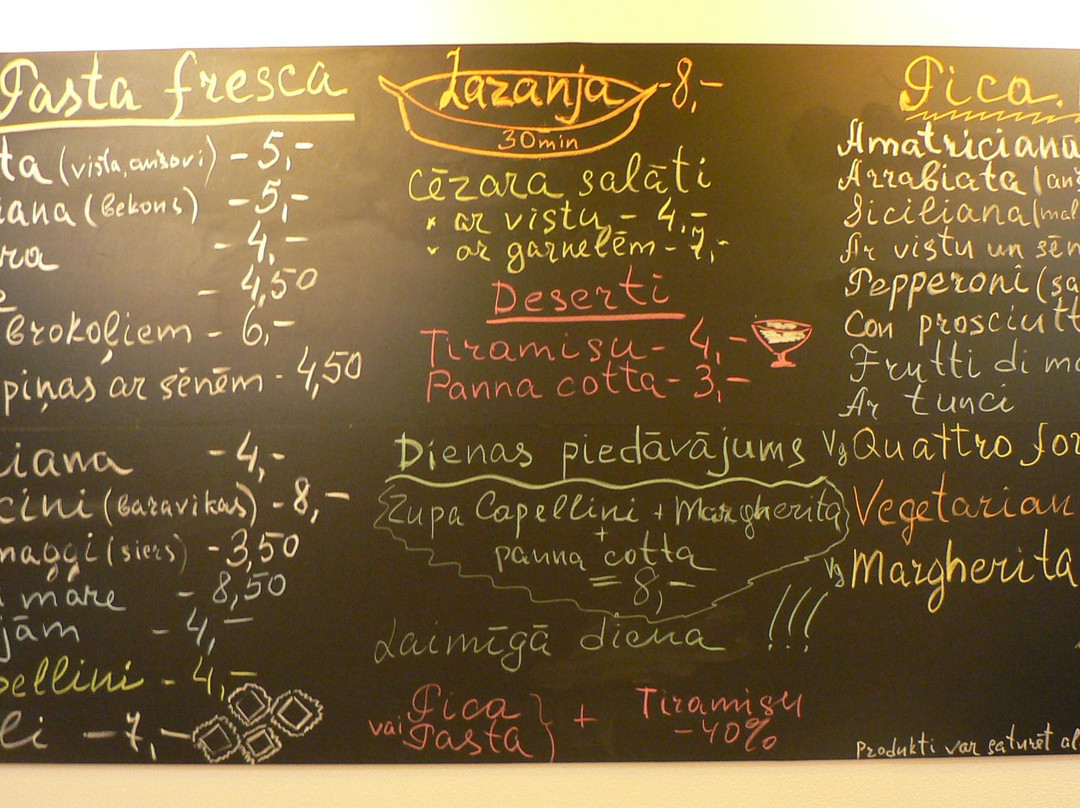 Pasta fresca
ta (vista, anšovi) - 5,-
iana (bekons) - 5,-
ra - 4,-
- 4,50
brokoļiem - 6,-
piņas ar sēnēm - 4,50
iana - 4,-
cini (baravikas) - 8,-
maggi (siers) - 3,50
i mare - 8,50
jām - 4,-
pellini - 4,-
li - 7,-
Lazanja - 8,-
30min
Cēzara salāti
* ar vistu - 4,-
* ar garnelēm - 7,-
Deserti
Tiramisu - 4,-
Panna cotta - 3,-
Dienas piedāvājums
Zupa Capellini + Margherita
+
panna cotta
= 8,-
Laimīgā diena !!!
Pica
vai Pasta } + Tiramisu
-40%
Pica.
Amatriciana
Arrabiata (anš
Siciliana (mal
Ar vistu un sēn
Pepperoni (sa
Con prosciutt
Frutti di ma
Ar tunci
Vg Quattro for
Vegetarian
Vg Margherita
Produkti var saturēt al